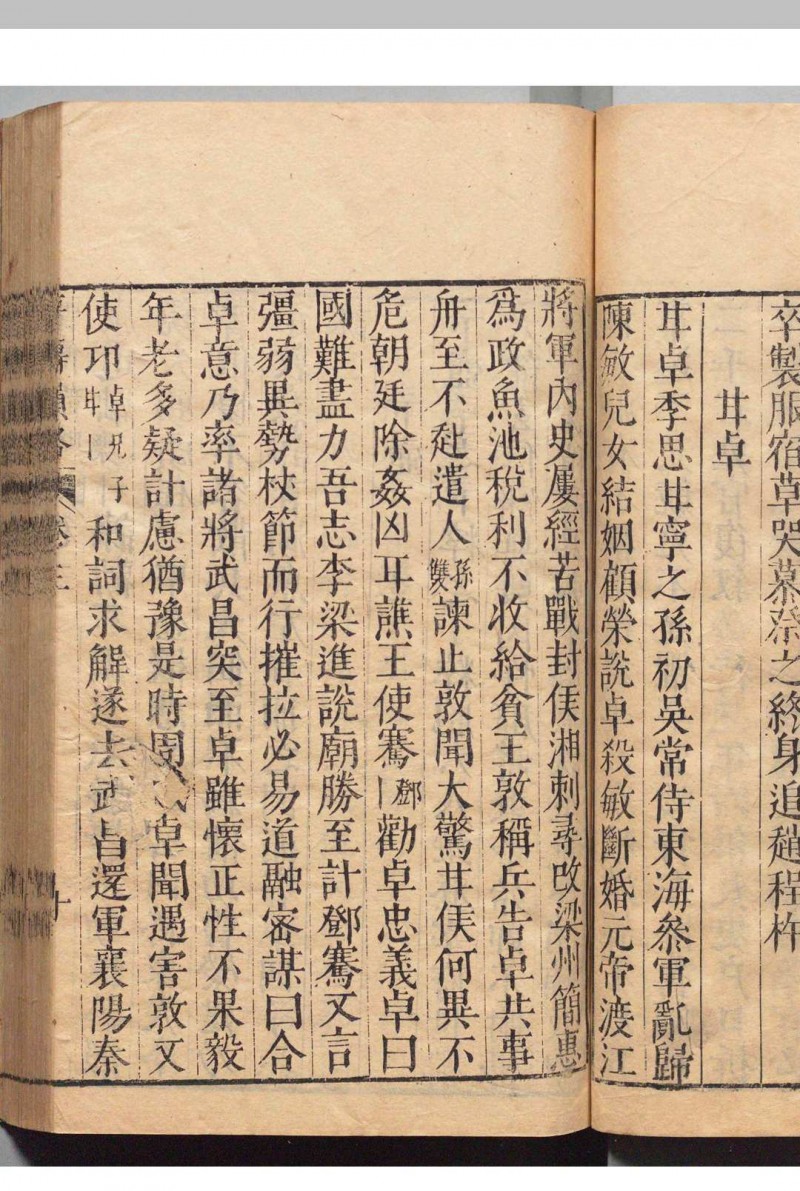 卒製服宿草哭墓祭之終身追趙程杵
甘卓
甘卓季思甘寧之孫初吳常侍東海參軍亂歸
陳敏兒女結姻顧榮說卓殺敏斷婚元帝渡江
將軍內史屢經苦戰封侯湘刺尋改梁州簡惠
爲政魚池稅利不收給貧王敦稱兵告卓共事
舟至不赴遣人孫雙諫止敦聞大驚甘侯何異不
危朝廷除姦凶耳譙王使騫鄧丨勸卓忠義卓曰
國難盡力吾志李梁進說廟勝至計鄧騫又言
彊弱異勢杖節而行摧拉必易道融審謀曰合
卓意乃率諸將武昌突至卓雖懷正性不果毅
年老多疑計慮猶豫是時周卓聞遇害敦又
使卬卓兄子甘丨和詞求解遂去武昌還軍襄陽秦
卷三 十